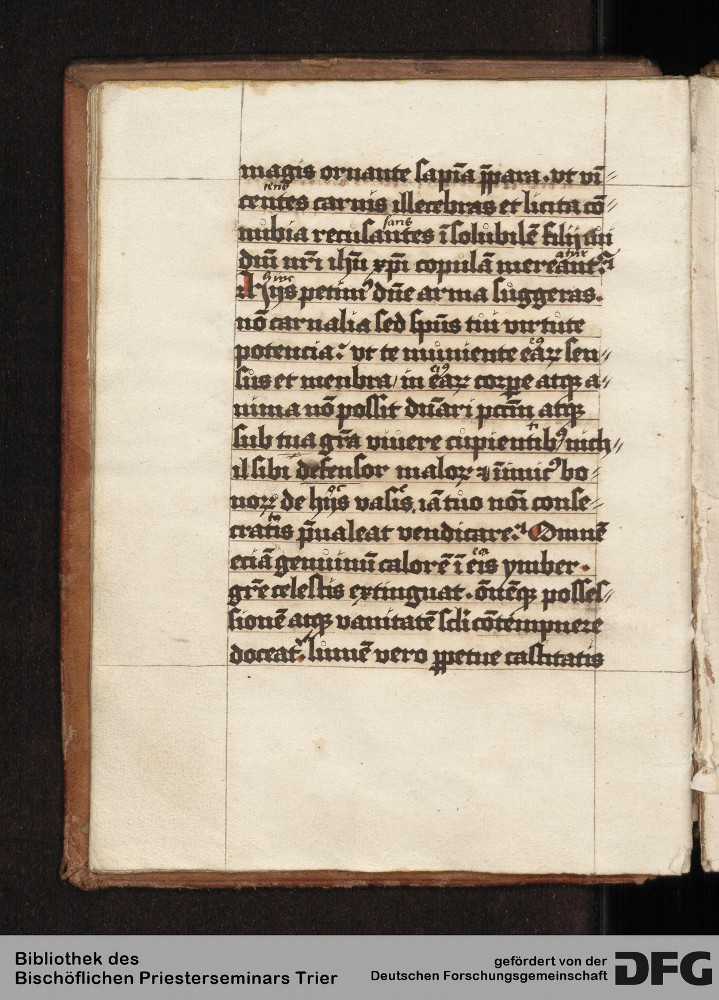 magis ornante sapīa p̄para . vt vī⸗
cens
centes carnis illecebras et licita cō⸗
sans
nubia recusantes īsolubilē filij tui
dn̄i nr̄i ihū xp̄i copulā mereant᷑
hinc
Hijs petim᷒ dn̄e arma suggeras .
nō carnalia sed sp̄us tui virtute
potencia : vt te muniente eaꝝ sen⸗
sus et menbra / in eaꝝ corꝑe atqꝫ a⸗
nima nō possit dn̄ari pcc̄m atqꝫ
sub tua gr̄a viuere cupientib᷒ nich⸗
il sibi defensor maloꝝ ⁊ īīmic᷒ bo⸗
noꝝ de hijs vasis , iā tuo noī conse⸗
cratis p̄ualeat vendicare : Omnē
eciā genuinū calorē ī eis ymber .
gr̄e celestis extinguat . ōnēqꝫ posses⸗
sionē atqꝫ vanitatē sc̄li cōtempnere
doceat : lumē vero ꝑpetue castitatis
Bibliothek des
Bischöflichen Priesterseminars Trier
gefördert von der
Deutschen Forschungsgemeinschaft
DFG